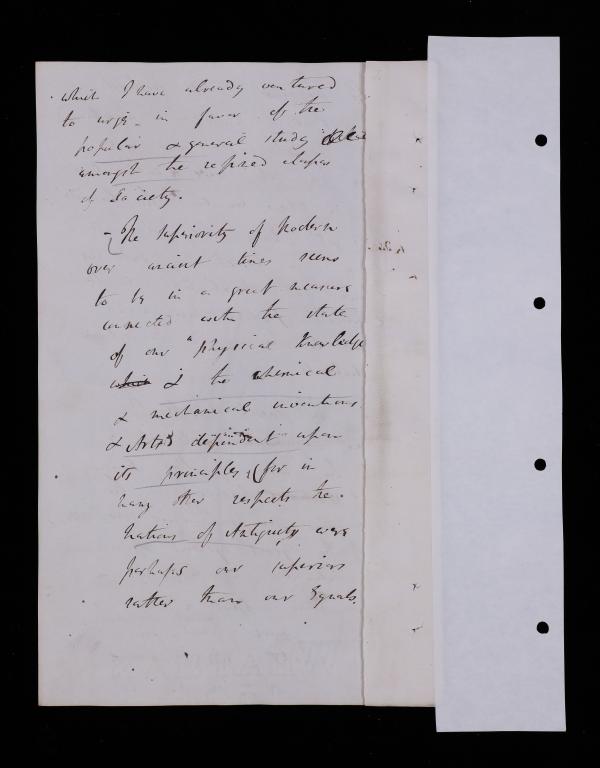 which I have already ventured
to urge in favor of the
popular & general study
amongst the refined classes
of Society.
– The superiority of Modern
over ancient times seems
to be in a great measure
connected with the state
of our "physical Knowledge
which & the chemical
& mechanical inventions
& Arts dependent upon
its principles, (for in
many other respects the
Nations of Antiquity were
perhaps our superiors
rather than our Equals.